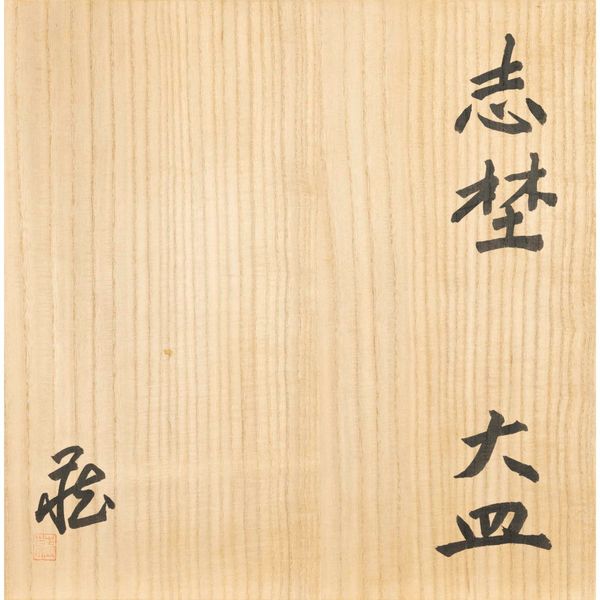 志埜
大皿
藏